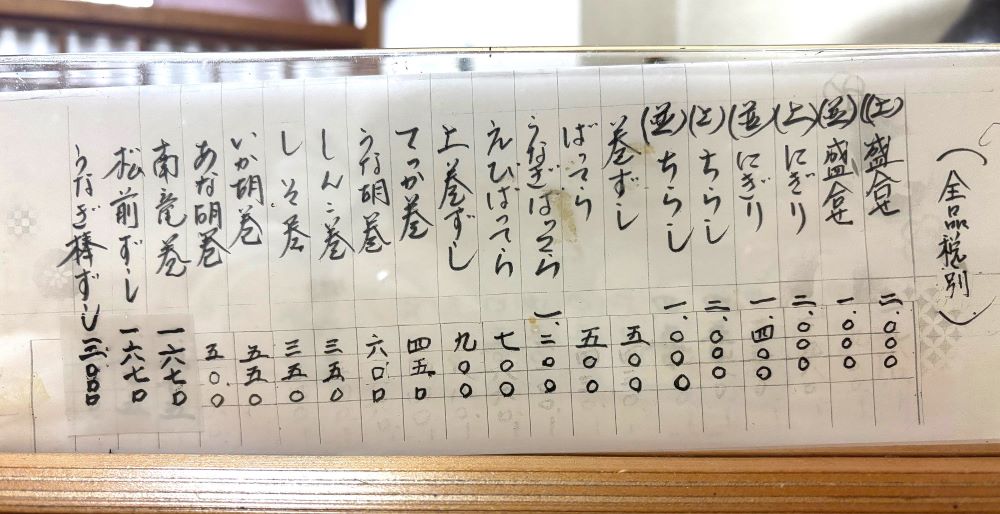 (全品税別)
(上)盛合せ 二.〇〇〇
(並)盛合せ 一.〇〇〇
(上)にぎり 二.〇〇〇
(並)にぎり 一.四〇〇
(上)ちらし 二.〇〇〇
(並)ちらし 一.〇〇〇
巻ずし 五〇〇
ばってら 五〇〇
うなぎばってら 一.二〇〇
えびばってら 七〇〇
上巻ずし 九〇〇
てっか巻 四五〇
うな胡巻 六〇〇
しんこ巻 三五〇
しそ巻 三五〇
いか胡巻 五五〇
あな胡巻 五〇〇
南竜巻 一六七〇
松前ずし 一六七〇
うなぎ棒ずし 三〇〇〇